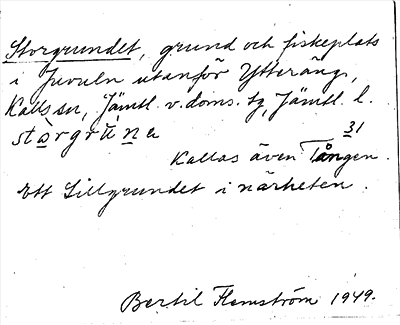 Storgrundet, grund och fiskeplats
i Juvuln utanför Ytteräng,
Kalls sn, Jämtl. v. doms. tg, Jämtl. l.
stàrgrú̱ṉa 31
Kallas även Tången.
Ett Lillgrundet i närheten.
Bertil Flemström 1949.